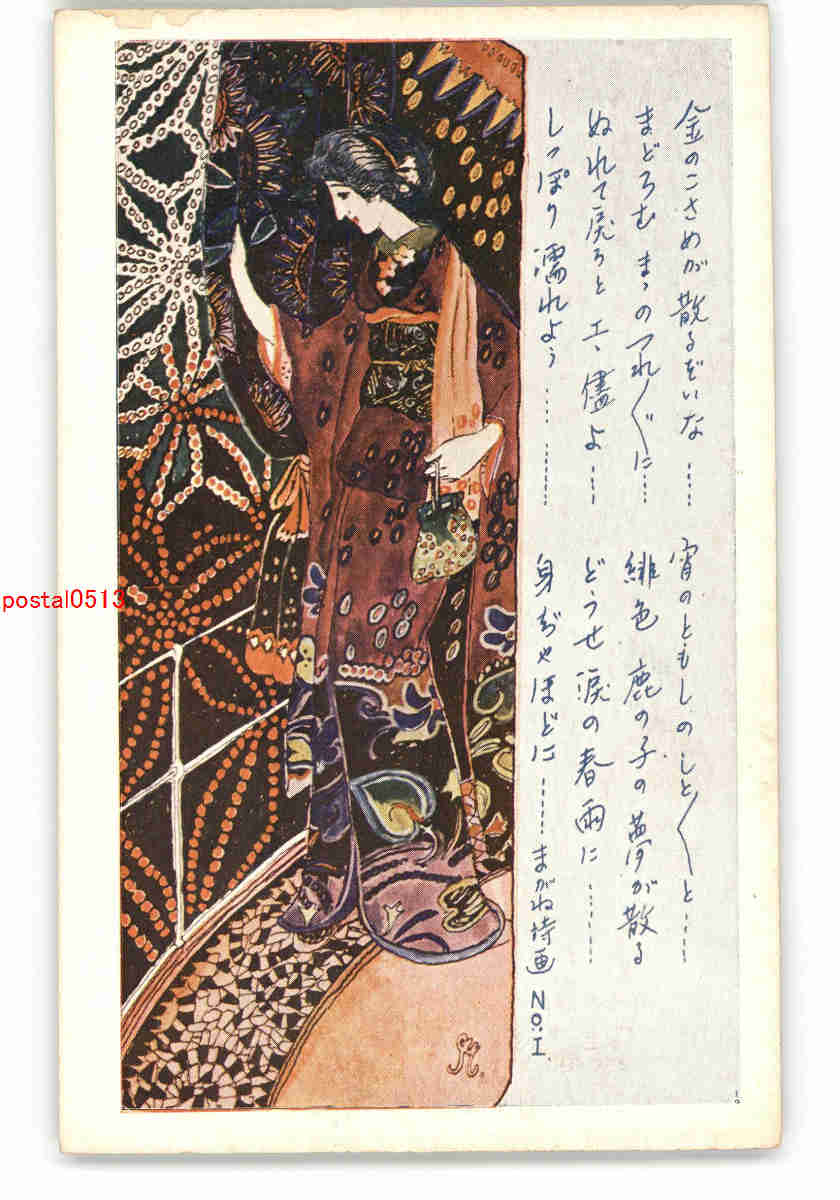 金のこさめが散るぞいな…… 宵のともしのしと〱と……
まどろむまゝのつれ〲に…… 緋色鹿の子の夢が散る
ぬれて戻ろとエヽ儘よ…… どうせ涙の春雨に……
しつぽり濡れよう…… 身ぢやほどに…… まがね詩画 No. I.
postal0513